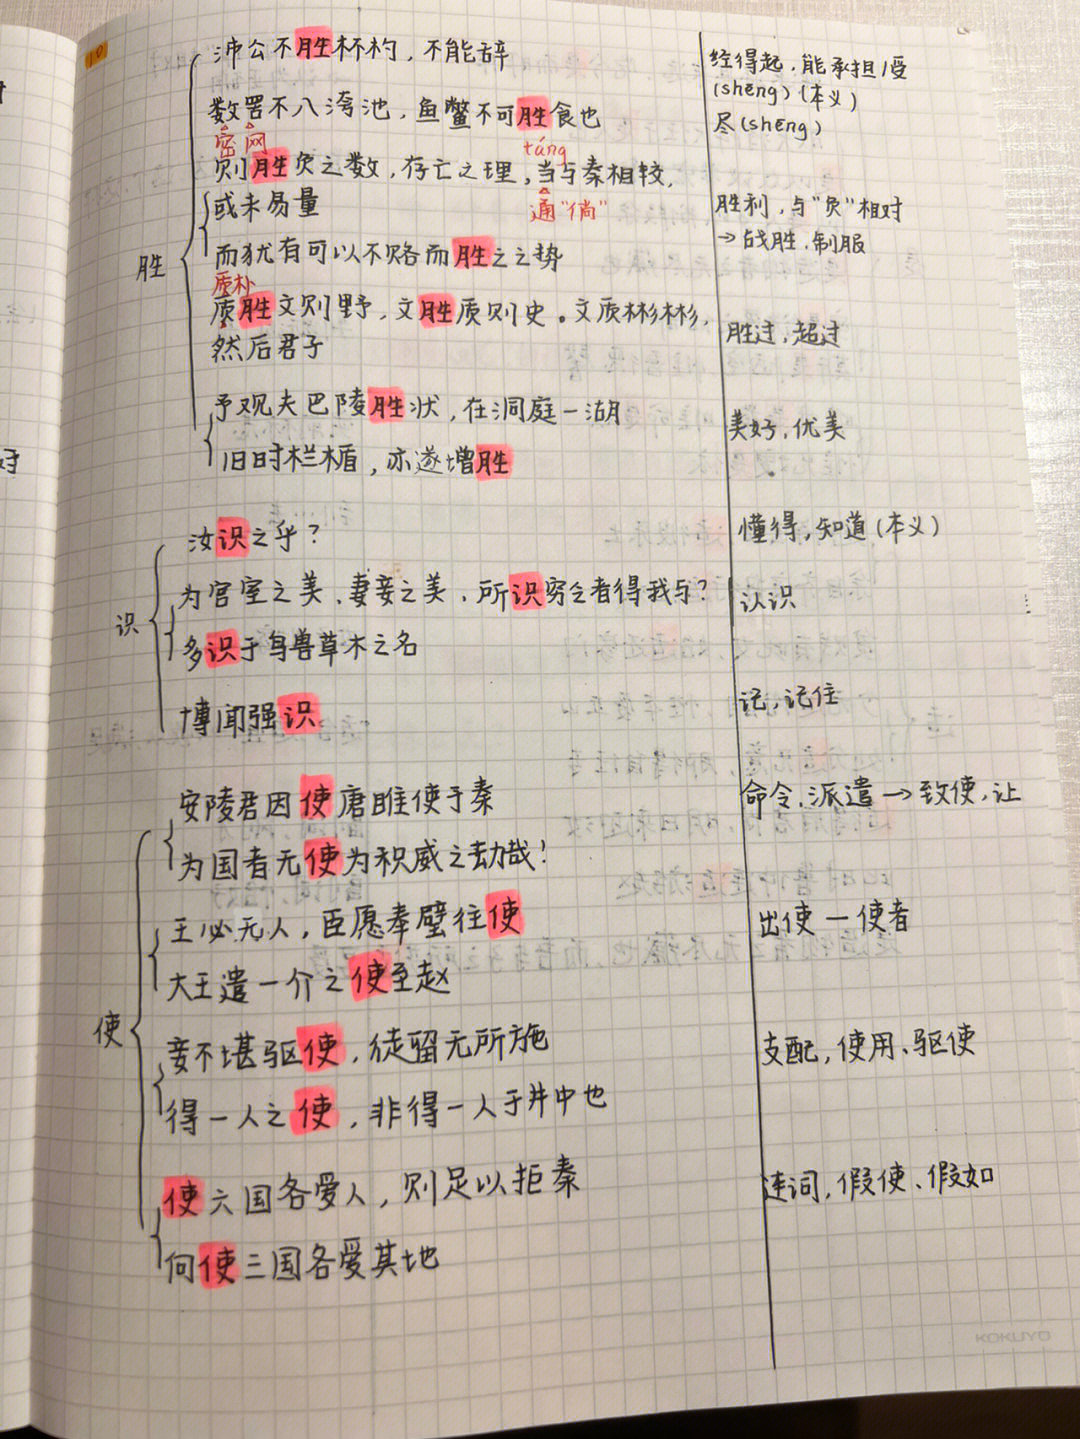 10
沛公不胜杯杓，不能辞
经得起，能承担/受
(shēng)(本义)
数罟不入洿池，鱼鳖不可胜食也
尽(shēng)
密 网
táng
则胜负之数，存亡之理，当与秦相较，
或未易量
通"倘"
胜利，与"负"相对
→战胜，制服
而犹有可以不赂而胜之之势
胜
质朴
质胜文则野，文胜质则史。文质彬彬，
然后君子
胜过，超过
予观夫巴陵胜状，在洞庭一湖
美好，优美
旧时栏楯，亦遂增胜
汝识之乎？
懂得，知道(本义)
为宫室之美、妻妾之美、所识穷乏者得我与？
认识
识
多识于鸟兽草木之名
博闻强识
记，记住
安陵君因使唐雎使于秦
命令、派遣→致使，让
为国者无使为积威之劫哉！
王必无人，臣愿奉璧往使
出使—使者
大王遣一介之使至赵
使
妾不堪驱使，徒留无所施
支配，使用、驱使
得一人之使，非得一人于井中也
使六国各爱人，则足以拒秦
连词，假使、假如
向使三国各爱其地
KOKUYO